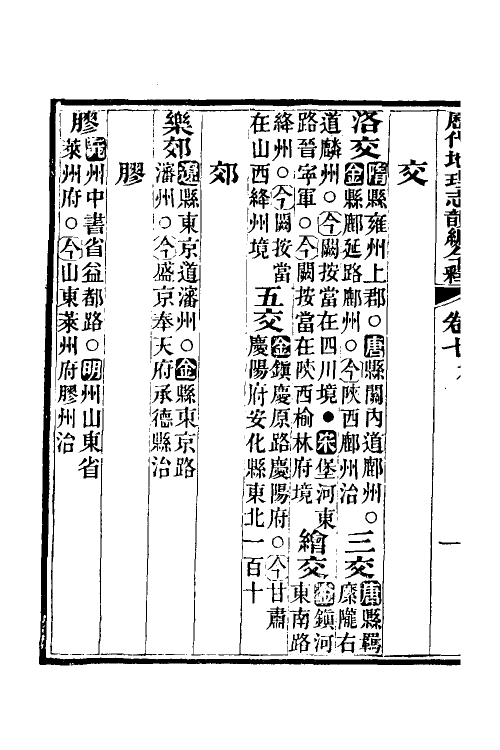 歷代地理志韻編今釋 卷十
一
交
洛交 隋縣雍州上郡○唐縣關內道鄜州○
金縣鄜延路鄜州○今陝西鄜州治
三交 唐縣羈
縻隴右
道麟州○今闕按當在四川境●宋堡河東
路晉寧軍○今闕按當在陝西榆林府境
繪交 金鎮河
東南路
絳州○今闕按當
在山西絳州境
五交 金鎮慶原路慶陽府○今甘肅
慶陽府安化縣東北一百十
郊
樂郊 遼縣東京道瀋州○金縣東京路
瀋州○今盛京奉天府承德縣治
膠
膠 元州中書省益都路○明州山東省
萊州府○今山東萊州府膠州治